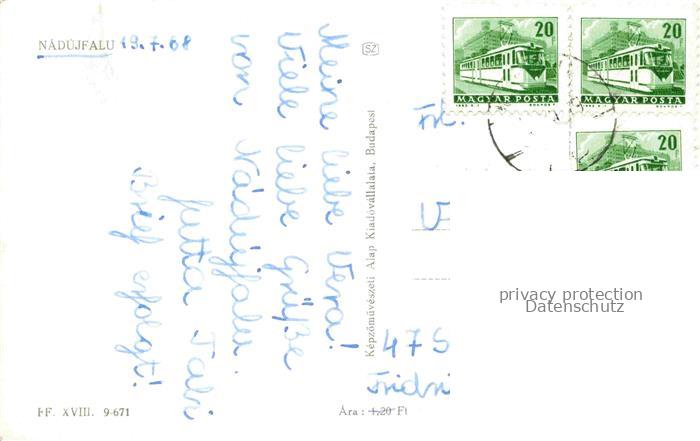 NÁDÚJFALU 19.7.68
Meine liebe Vera!
Viele liebe Grüße
von Nádújfalu.
Jutta
Brief erfolgt!
FF. XVIII. 9-671
SZ
Képzőművészeti Alap Kiadóvállalata, Budapest
Ára: 1,20 Ft
20
MAGYAR POSTA
20
MAGYAR POSTA
20
Frl.
V
475
privacy protection
Datenschutz